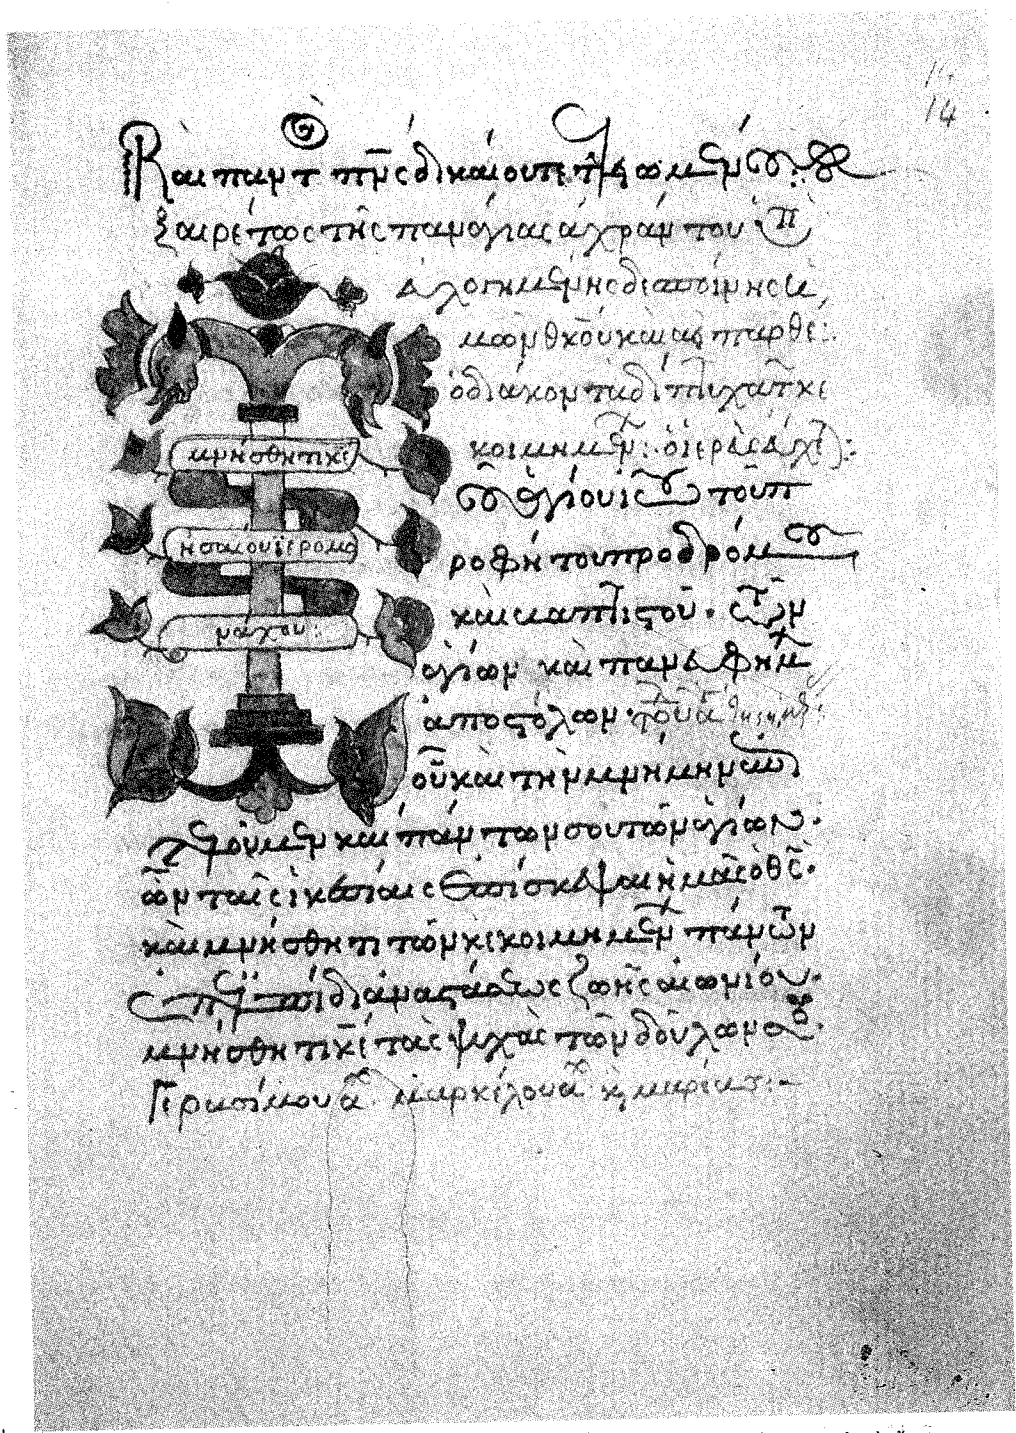 14
Καὶ παντ πνς δικαίου πν τετελειωμένου
ξαιρέτως τῆς παναγίας ἀχράντου ὑπ
λογημένης δεσποίνης
μῶν θκου καὶ ἀει παρθέ:
ὁ διάκον τὰ δίπτυχα τ κε
κοιμημεν: ὁ ἱερεὺς
ἁγίου ἰω τοῦ π
ροφήτου προδρόμ
καὶ βαπτιστοῦ. τῶν
ἁγίων καὶ πανευφήμ
ἀποστόλων. τοῦ ἁ
οὗ καὶ τὴν μνήμην
τελοῦμεν καὶ πάντων σου τῶν ἁγίων.
ὧν ταῖς ἱκεσίαις ἐπίσκεψαι ἡμᾶς ὁ θς.
καὶ μνήσθητι τῶν κεκοιμημεν πάντων
ἐπ ἐλπίδι ἀναστάσεως ζωῆς αἰωνίου.
μνήσθητι κε τὰς ψυχὰς τῶν δούλων σου.
Γερασίμου α. μαρκέλου α. κ μαρίας:-
μνήσθητι κε
ἡσαιου ἱερομο
ναχου: